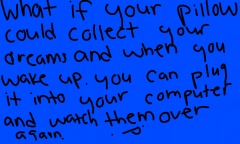 What if your pillow
could collect your
dreams and when you
wake up. you can plug
it into your computer
and watch them over
again.